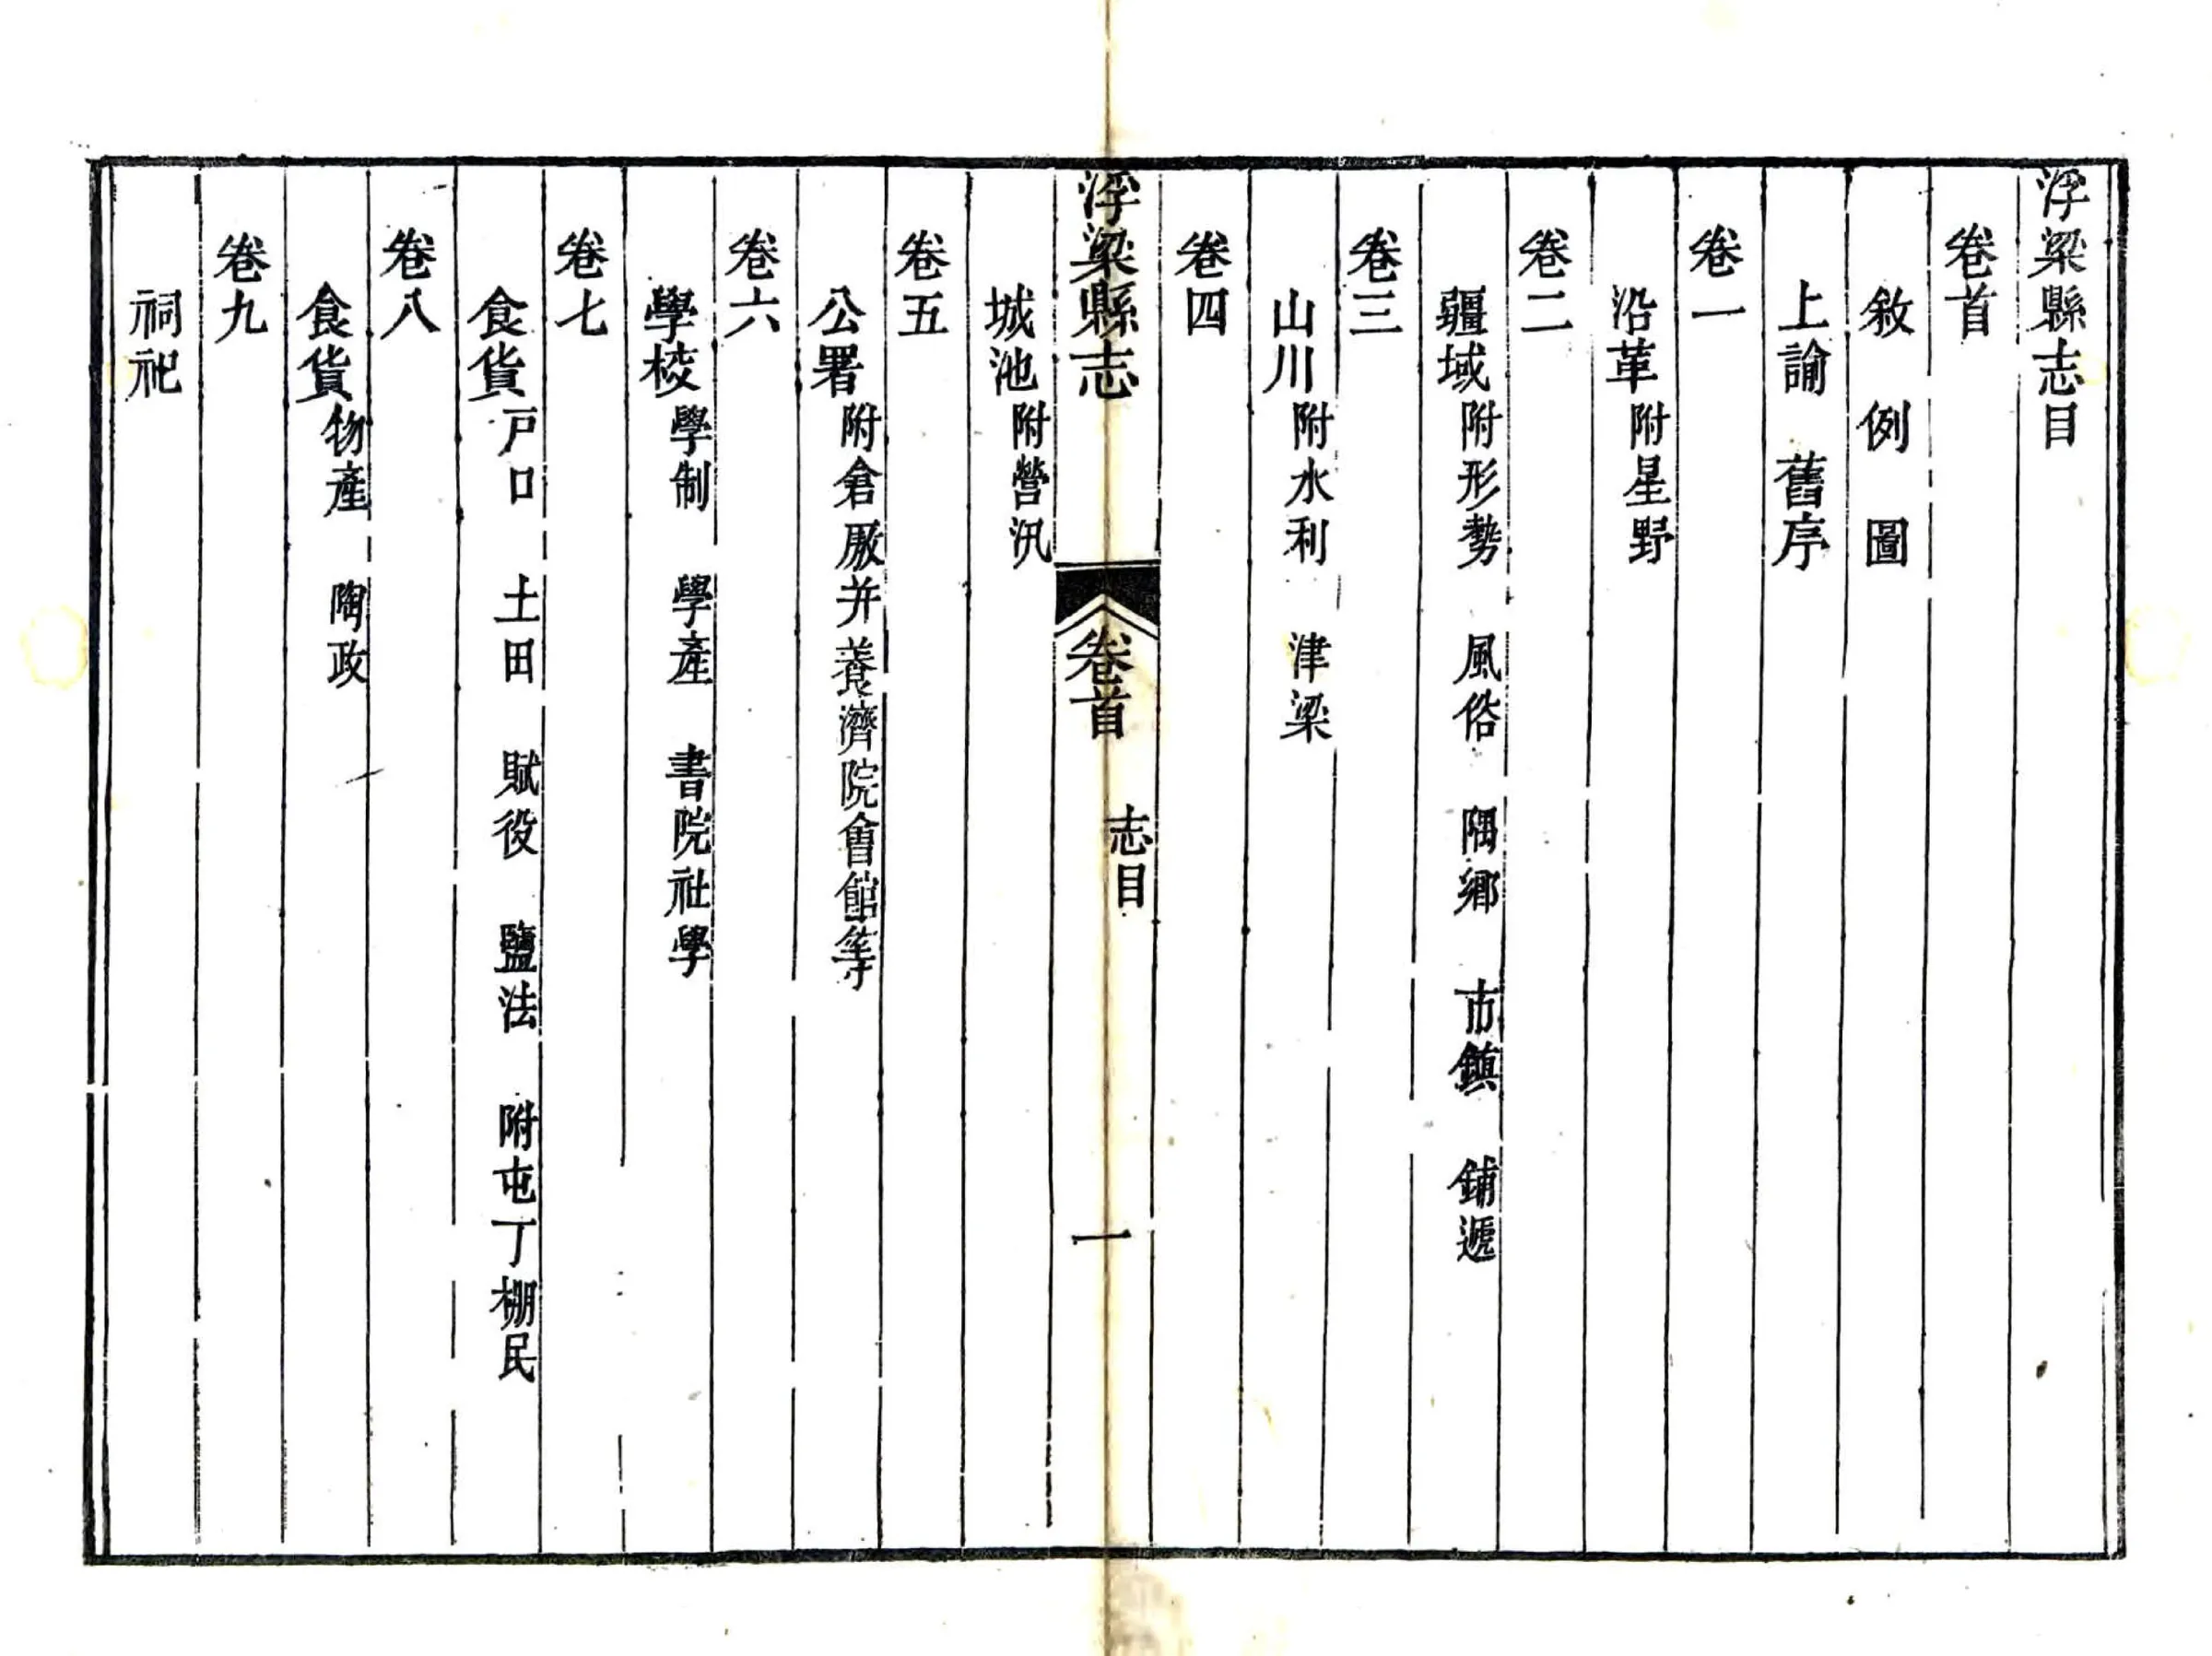 浮梁縣志目
卷首
敘　例　圖
上諭　舊序
卷一
沿革附星野
卷二
疆域附形勢　風俗　隅鄉　市鎮　鋪遞
卷三
山川附水利　津梁
卷四
浮梁縣志　卷首　志目　一
城池附營汛
卷五
公署附倉厫并養濟院會館等
卷六
學校學制　學產　書院社學
卷七
食貨戸口　土田　賦役　鹽法　附屯丁棚民
卷八
食貨物產　陶政
卷九
祠祀